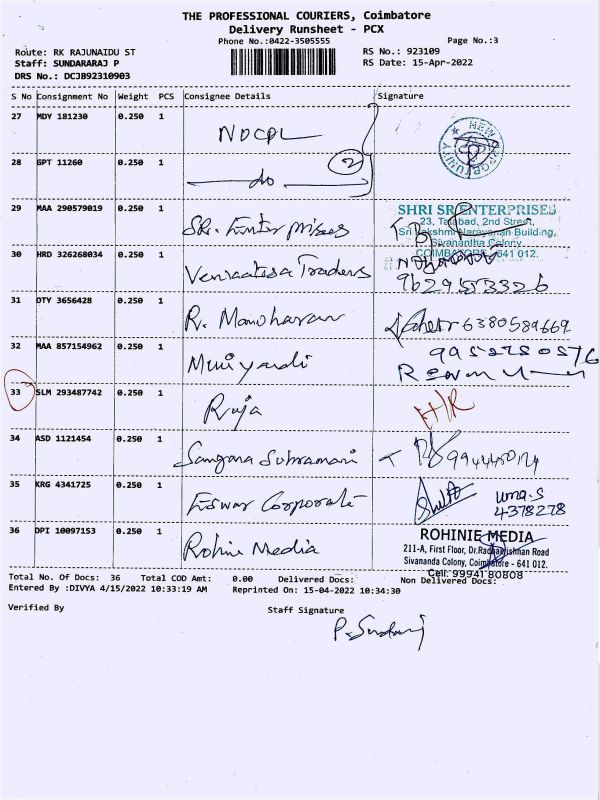 THE PROFESSIONAL COURIERS, Coimbatore
Delivery Runsheet - PCX
Phone No.:0422-3505555 Page No.:3
Route: RK RAJUNAIDU ST RS No.: 923109
Staff: SUNDARARAJ P RS Date: 15-Apr-2022
DRS No.: DCJB92310903
S No Consignment No Weight PCS Consignee Details Signature
27 MDY 181230 0.250 1 NDCPL
28 GPT 11260 0.250 1 do 2
NEW OPPORTUNITY
29 MAA 290579019 0.250 1 SR. Enterprises
SHRI SR ENTERPRISES
23, Tatabad, 2nd Street,
Sri Lakshmi Narayanan Building,
Sivanantha Colony
COIMBATORE - 641 012.
30 HRD 326268034 0.250 1 Venkatesa Traders 9629553326
31 OTY 3656428 0.250 1 R. Manoharan 6380589669
32 MAA 857154962 0.250 1 Muniyandi 9952250576
33 SLM 293487742 0.250 1 Raja H/R
34 ASD 1121454 0.250 1 Sangara Subramani
35 KRG 4341725 0.250 1 Eswar Corporate uma.S
4378278
36 DPI 10097153 0.250 1 Rohini Media
ROHINIE MEDIA
211-A, First Floor, Dr.Radhakrishnan Road
Sivananda Colony, Coimbatore - 641 012.
Cell: 99941 80808
Total No. Of Docs: 36 Total COD Amt: 0.00 Delivered Docs: Non Delivered Docs:
Entered By :DIVYA 4/15/2022 10:33:19 AM Reprinted On: 15-04-2022 10:34:30
Verified By Staff Signature
P. Sundaraj